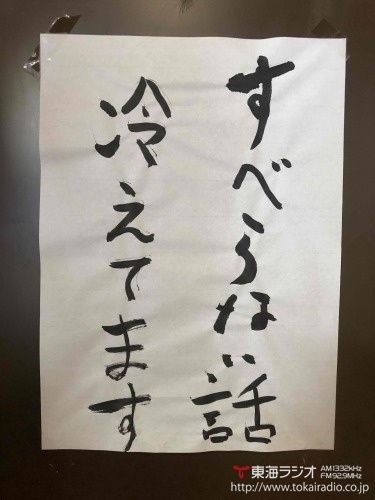 すべらない話
冷えてます
東海ラジオ AM1332kHz
FM92.9MHz
http://www.tokairadio.co.jp